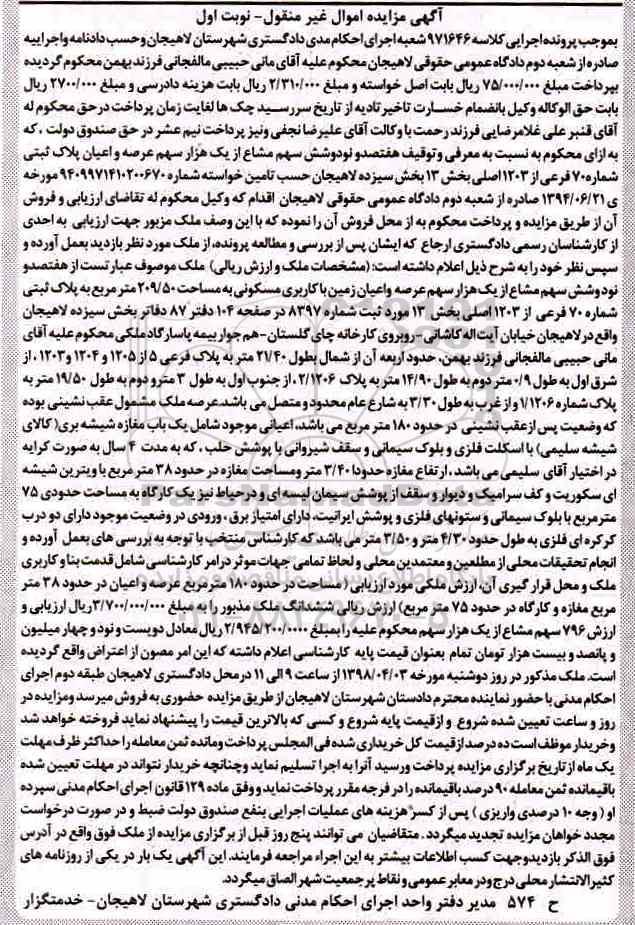 آگهی مزایده اموال غیر منقول- نوبت اول
بموجب پرونده اجرایی کلاسه ۹۷۱۶۴۶ شعبه اجرای احکام مدی دادگستری شهرستان لاهیجان وحسب دادنامه واجراییه
صادره از شعبه دوم دادگاه عمومی حقوقی لاهیجان محکوم علیه آقای مانی حبیبی مالفجانی فرزند بهمن محکوم گردیده
بپرداخت مبلغ ۷۵/۰۰۰/۰۰۰ ریال بابت اصل خواسته و مبلغ ۲/۳۱۰/۰۰۰ ریال بابت هزینه دادرسی و مبلغ ۲۷۰۰/۰۰۰ ریال
بابت حق الوکاله وکیل بانضمام خسارت تاخیر تادیه از تاریخ سررسید چک ها لغایت زمان پرداخت درحق محکوم له
آقای قنبر علی غلامرضایی فرزند رحمت با وکالت آقای علیرضا نجفی ونیز پرداخت نیم عشر در حق صندوق دولت ، که
به ازای محکوم به نسبت به معرفی وتوقیف هفتصدو نودوشش سهم مشاع از یک هزار سهم عرصه و اعیان پلاک ثبتی
شماره ۷۰ فرعی از ۱۲۰۳ اصلی بخش ۱۳ بخش سیزده لاهیجان حسب تامین خواسته شماره ۹۴۰۹۹۷۱۴۱۰۲۰۰۶۷۰ مورخه
ی ۱۳۹۴/۰۶/۲۱ صادره از شعبه دوم دادگاه عمومی حقوقی لاهیجان اقدام که وکیل محکوم له تقاضای ارزیابی و فروش
آن از طریق مزایده و پرداخت محکوم به از محل فروش آن را نموده که با این وصف ملک مزبور جهت ارزیابی به احدی
از کارشناسان رسمی دادگستری ارجاع که ایشان پس از بررسی و مطالعه پرونده، از ملک مورد نظر بازدید بعمل آورده و
سپس نظر خود را به شرح ذیل اعلام داشته است: (مشخصات ملک و ارزش ریالی) ملک موصوف عبارتست از هفتصدو
نودوشش سهم مشاع از یک هزار سهم عرصه واعیان زمین با کاربری مسکونی به مساحت ۲۰۹/۵۰ متر مربع به پلاک ثبتی
شماره ۷۰ فرعی از ۱۲۰۳ اصلی بخش ۱۳ مورد ثبت شماره ۸۳۹۷ در صفحه ۱۰۴ دفتر ۸۷ دفاتر بخش سیزده لاهیجان
واقع در لاهیجان خیابان آیت اله کاشانی-روبروی کارخانه چای گلستان-هم جوار بیمه پاسارگاد ملکی محکوم علیه آقای
مانی حبیبی مالفجانی فرزند بهمن، حدود اربعه آن از شمال بطول ۲۱/۴۰ متر به پلاک فرعی ۵ از ۱۲۰۵ و ۱۲۰۴ و ۱۲۰۳، از
شرق اول به طول ۰/۹ متر دوم به طول ۱۴/۹۰ متر به پلاک ۲/۱۲۰۶، از جنوب اول به طول ۳ مترو دوم به طول ۱۹/۵۰ متر به
پلاک شماره ۱/۱۲۰۶ و از غرب به طول ۳/۳۰ به شارع عام محدود و متصل می باشد.عرصه ملک مشمول عقب نشینی بوده
که وضعیت پس از عقب نشینی در حدود ۱۸۰ متر مربع می باشد، اعیانی موجود شامل یک باب مغازه شیشه بری( کالای
شیشه سلیمی) با اسکلت فلزی و بلوک سیمانی و سقف شیروانی با پوشش حلب ، که به مدت ۴ سال به صورت کرایه
در اختیار آقای سلیمی می باشد ، ارتفاع مغازه حدودا ۳/۴۰ متر ومساحت مغازه در حدود ۳۸ متر مربع با ویترین شیشه
ای سکوریت و کف سرامیک و دیوار و سقف از پوشش سیمان لیسه ای و درحیاط نیز یک کارگاه به مساحت حدودی ۷۵
مترمربع با بلوک سیمانی و ستونهای فلزی و پوشش ایرانیت، دارای امتیاز برق ، ورودی در وضعیت موجود دارای دو درب
کرکره ای فلزی به طول حدود ۴/۳۰ متر و ۳/۵۰ متر می باشد که کارشناس منتخب با توجه به بررسی های بعمل آورده و
انجام تحقیقات محلی از مطلعین و معتمدین محلی و لحاظ تمامی جهات موثر درامر کارشناسی شامل قدمت بنا و کاربری
ملک و محل قرار گیری آن، ارزش ملکی مورد ارزیابی ( مساحت در حدود ۱۸۰ مترمربع عرصه و اعیان در حدود ۳۸ متر
مربع مغازه و کارگاه در حدود ۷۵ متر مربع) ارزش ریالی ششدانگ ملک مذبور را به مبلغ ۳/۷۰۰/۰۰۰/۰۰۰ریال ارزیابی و
ارزش ۷۹۶ سهم مشاع از یک هزار سهم محکوم علیه را بمبلغ ۲/۹۴۵/۲۰۰/۰۰۰ ریال معادل دویست و نود و چهار میلیون
و پانصد و بیست هزار تومان تمام بعنوان قیمت پایه کارشناسی اعلام داشته که این امر مصون از اعتراض واقع گردیده
است. ملک مذکور در روز دوشنبه مورخه ۱۳۹۸/۰۴/۰۳ از ساعت ۹ الی ۱۱ در محل دادگستری لاهیجان طبقه دوم اجرای
احکام مدنی با حضور نماینده محترم دادستان شهرستان لاهیجان از طریق مزایده حضوری به فروش میرسد ومزایده در
روز و ساعت تعیین شده شروع و ازقیمت پایه شروع و کسی که بالاترین قیمت را پیشنهاد نماید فروخته خواهد شد
وخریدار موظف است ده درصد از قیمت کل خریداری شده فی المجلس پرداخت ومانده ثمن معامله را حداکثر ظرف مهلت
یک ماه از تاریخ برگزاری مزایده پرداخت ورسید آنرا به اجرا تسلیم نماید وچنانچه خریدار نتواند در مهلت تعیین شده
باقیمانده ثمن معامله ۹۰ درصد باقیمانده را در فرجه مقرر پرداخت نماید و وفق ماده ۱۲۹ قانون اجرای احکام مدنی سپرده
او ( وجه ۱۰ درصدی واریزی ) پس از کسر هزینه های عملیات اجرایی بنفع صندوق دولت ضبط و در صورت درخواست
مجدد خواهان مزایده تجدید میگردد . متقاضیان می توانند پنج روز قبل از برگزاری مزایده از ملک فوق واقع در آدرس
فوق الذکر بازدید وجهت کسب اطلاعات بیشتر به این اجراء مراجعه فرمایند. این آگهی یک بار در یکی از روزنامه های
کثیرالانتشار محلی درج ودر معابر عمومی و نقاط پر جمعیت شهر الصاق میگردد.
ح ۵۷۴ مدیر دفتر واحد اجرای احکام مدنی دادگستری شهرستان لاهیجان- خدمتگزار